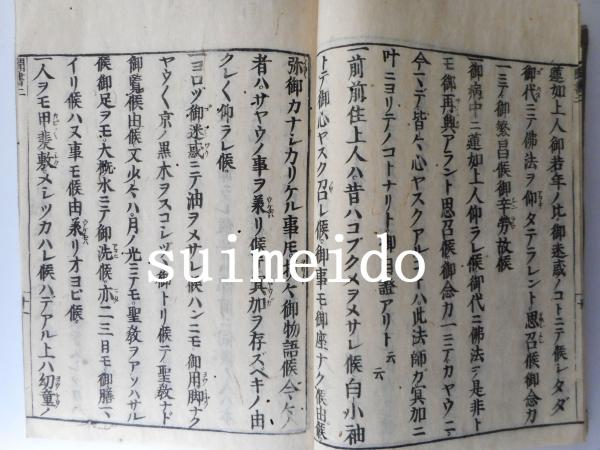 蓮如上人御若年ノ比御迷惑ノコトニテ候シタヾ
御代ニテ佛法ヲ仰タテラレント思召候御念力
一ニテ御繁昌候御辛労故候
御病中ニ蓮如上人仰ラレ候御代ニ佛法ヲ是非ト
モ御再興アラント思召候御念力一ニテカヤウニ
今マデ皆々心ヤスクアルコトハ此法師ガ冥加ニ
叶ニヨリテノコトナリト御自證アリト云云
一前前住上人ハ昔ハコブクメヲメサレ候白小袖
トテ御心ヤスク召レ候御事モ御座ナク候由候
弥御カナシカリケル事𪜈折々御物語候今々ノ
者ハサヤウノ事ヲ乗リ候テ冥加ヲ存ズベキノ由
クレ〴〵仰ラレ候
一ヨロヅ御迷惑ニテ油ヲメサレ候ハンニモ御用脚ナク
ヤウ〳〵京ノ黒木ヲスコシヅヽ御トリ候テ聖教ナド
御覧候由候又少々ハ月ノ光ニテモ聖教ヲアソハサル
候御足ヲモ大概水ニテ御洗候亦二三日モ御膳マ
イリ候ハヌ事モ候由乗リオヨビ候
一人ヲモ甲斐敷メシツカハレ候ハデアル上ハ幼童ノ
suimeido